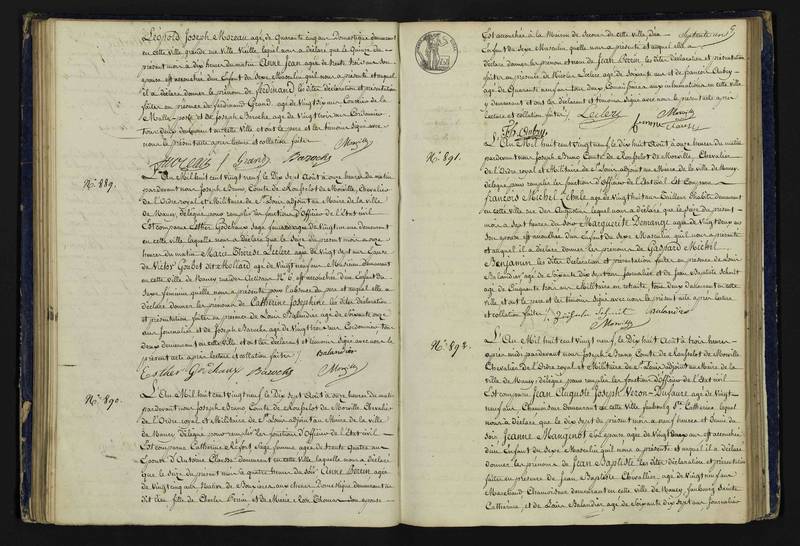 Léopold Joseph Mozeau agé de Quarante cinq ans Domestique demeurant
en cette ville grande rue Ville Vieille lequel nous a déclaré que le Quinze du
présent mois à dix heures du matin Anne Jean agée de trente trois ans son
épouse est accouchée d'un Enfant du Sexe Masculin qu'il nous a présenté et auquel
il a déclaré donner le prénom de Ferdinand les dites déclaration et présentation
faites en présence de Ferdinand Grand agé de Vingt six ans Courier de la
Malle-poste et de Joseph Baroche agé de Vingt trois ans Cordonnier
tous deux de cette Ville et ont le père et les témoins Signé avec
nous le présent acte après lecture et collation faites
Grand Baroche
N.º 889.
L'An Mil huit cent Vingt neuf le Dix sept Août à onze heures du matin
pardevant nous Joseph Bruno, Comte de Roufselot de Morville, Chevalier
de l'Ordre royal et Militaire de St Louis adjoint au Maire de la ville
de Nancy, délégué pour remplir les fonctions d'Officier de l'Etat civil
Est comparue Esther Godchaux Sage femme agée de Vingt un ans demeurant
en cette ville laquelle nous a déclaré que le Seize du présent mois à onze
heures du matin Marie Thérèse Leclerc agée de Vingt sept ans Epouse
de Victor Goubot dit Molliard agé de Vingt neuf ans Musicien demeurant
en cette Ville de Nancy rue des Artisans N.º 6, est accouchée d'un Enfant du
Sexe féminin qu'elle nous a présenté pour l'absence du père et auquel elle a
déclaré donner les prénoms de Catherine Josephine les dites déclaration
et présentation faites en présence de Louis Balandier agé de Soixante onze
ans Journalier et de Joseph Baroche agé de Vingt trois ans Cordonnier tous
deux demeurant en cette Ville et ont les déclarant et témoins Signé avec nous le
présent acte après lecture et collation faites Balandier
Esther Godchaux Baroche
N.º 890.
L'An Mil huit cent Vingt neuf le Dix sept Août à onze heures du matin
pardevant nous Joseph Bruno Comte de Roufselot de Morville Chevalier
de l'Ordre royal et Militaire de St Louis adjoint au Maire de la ville
de Nancy délégué pour remplir les fonctions d'Officier de l'Etat civil
Est comparue Catherine Sage femme agée de trente quatre ans
Epouse d'Antoine demeurant en cette Ville laquelle nous a déclaré
que le Seize du présent mois à quatre heures du Soir Anne Perin agée
de Vingt cinq ans Native de Domestique demeurant au
dit lieu fille de Charles Perin et de Marie son épouse
Est accouchée à la Maison de Secours de cette ville d'un
Enfant du Sexe Masculin qu'elle nous a présenté et auquel elle a
déclaré donner les prénom et nom de Jean Perin les dites déclaration et présentation
faites en présence de Nicolas Leclerc agé de Soixante six ans et de François Aubry
agé de Quarante neuf ans tous deux en cette ville
y demeurant et ont les déclarant et témoins Signé avec nous le présent acte après
lecture et collation faites Leclerc
femme
Fs. Aubry
N.º 891.
L'An Mil huit cent Vingt neuf le dix huit Août à onze heures du matin
pardevant nous Joseph Bruno Comte de Roufselot de Morville, Chevalier
de l'Ordre royal et Militaire de St Louis adjoint au Maire de la ville de Nancy
délégué pour remplir les fonctions d'Officier de l'Etat civil Est Comparu
François Michel agé de Vingt huit ans Tailleur d'habits demeurant
en cette ville rue des Augustins lequel nous a déclaré que le Seize du présent
mois à sept heures du soir Marguerite Demange agée de Vingt deux ans
son épouse est accouchée d'un Enfant du Sexe Masculin qu'il nous a présenté
et auquel il a déclaré donner les prénoms de Gaspard Michel
Benjamin les dites déclaration et présentation faites en présence de Louis
Balandier agé de Soixante Dix sept ans Journalier et de Jean Baptiste Schmit
agé de Cinquante trois ans Militaire en retraite, tous deux demeurant en cette
ville, et ont le père et les témoins Signé avec nous le présent acte après lecture
et collation faites Schmit Balandier
N.º 892.
L'An Mil huit cent Vingt neuf, le Dix huit Août à trois heures
après midi pardevant nous Joseph Bruno Comte de Roufselot de Morville
Chevalier de l'Ordre royal et Militaire de St Louis adjoint au Maire de la
ville de Nancy délégué pour remplir les fonctions d'Officier de l'Etat civil
Est comparu Jean Auguste Joseph Veron-Dufaure agé de Vingt
neuf ans Chamoiseur demeurant en cette Ville faubourg Ste Catherine lequel
nous a déclaré que le Dix sept du présent mois à neuf heures et demie du
soir Jeanne Mangenot son épouse, agée de Vingt ans est accouchée
d'un Enfant du Sexe Masculin qu'il nous a présenté et auquel il a déclaré
donner les prénoms de Jean Baptiste les dites déclaration et présentation
faites en présence de Jean Baptiste Chevallier agé de Vingt neuf ans
Marchand Chamoiseur demeurant en cette ville de Nancy, faubourg Sainte
Catherine, et de Louis Balandier agé de Soixante dix sept ans Journalier